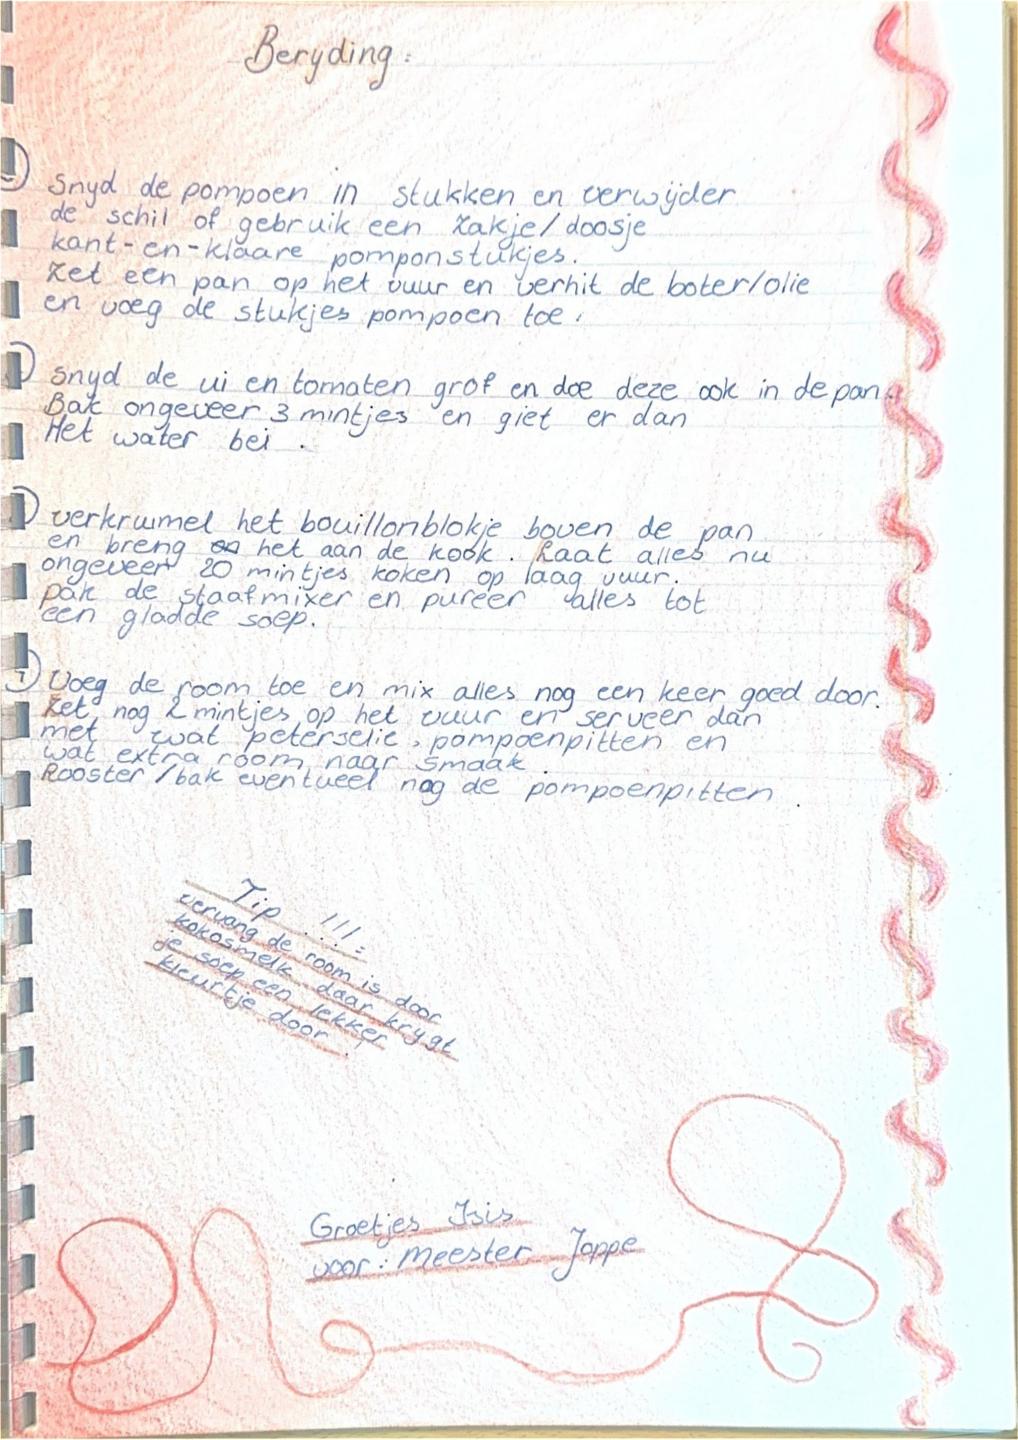 Beryding:
Snyd de pompoen in stukken en verwyder
de schil of gebruik een zakje/doosje
kant-en-klaare pomponstukjes.
Zet een pan op het vuur en verhit de boter/olie
en voeg de stukjes pompoen toe.
Snyd de ui en tomaten grof en doe deze ook in de pan.
Bak ongeveer 3 mintjes en giet er dan
Het water bei.
verkruimel het bouillonblokje boven de pan
en breng het aan de kook. Laat alles nu
ongeveer 20 mintjes koken op laag vuur.
pak de staafmixer en pureer alles tot
een gladde soep.
Voeg de room toe en mix alles nog een keer goed door.
Zet nog 2 mintjes op het vuur en serveer dan
met wat peterselie, pompoenpitten en
wat extra room naar smaak.
Rooster/bak eventueel nog de pompoenpitten.
Tip !!!:
vervang de room is door
kokosmelk daar krygt
je soep een lekker
kleurtje door!
Groetjes Isis
voor: Meester Joppe